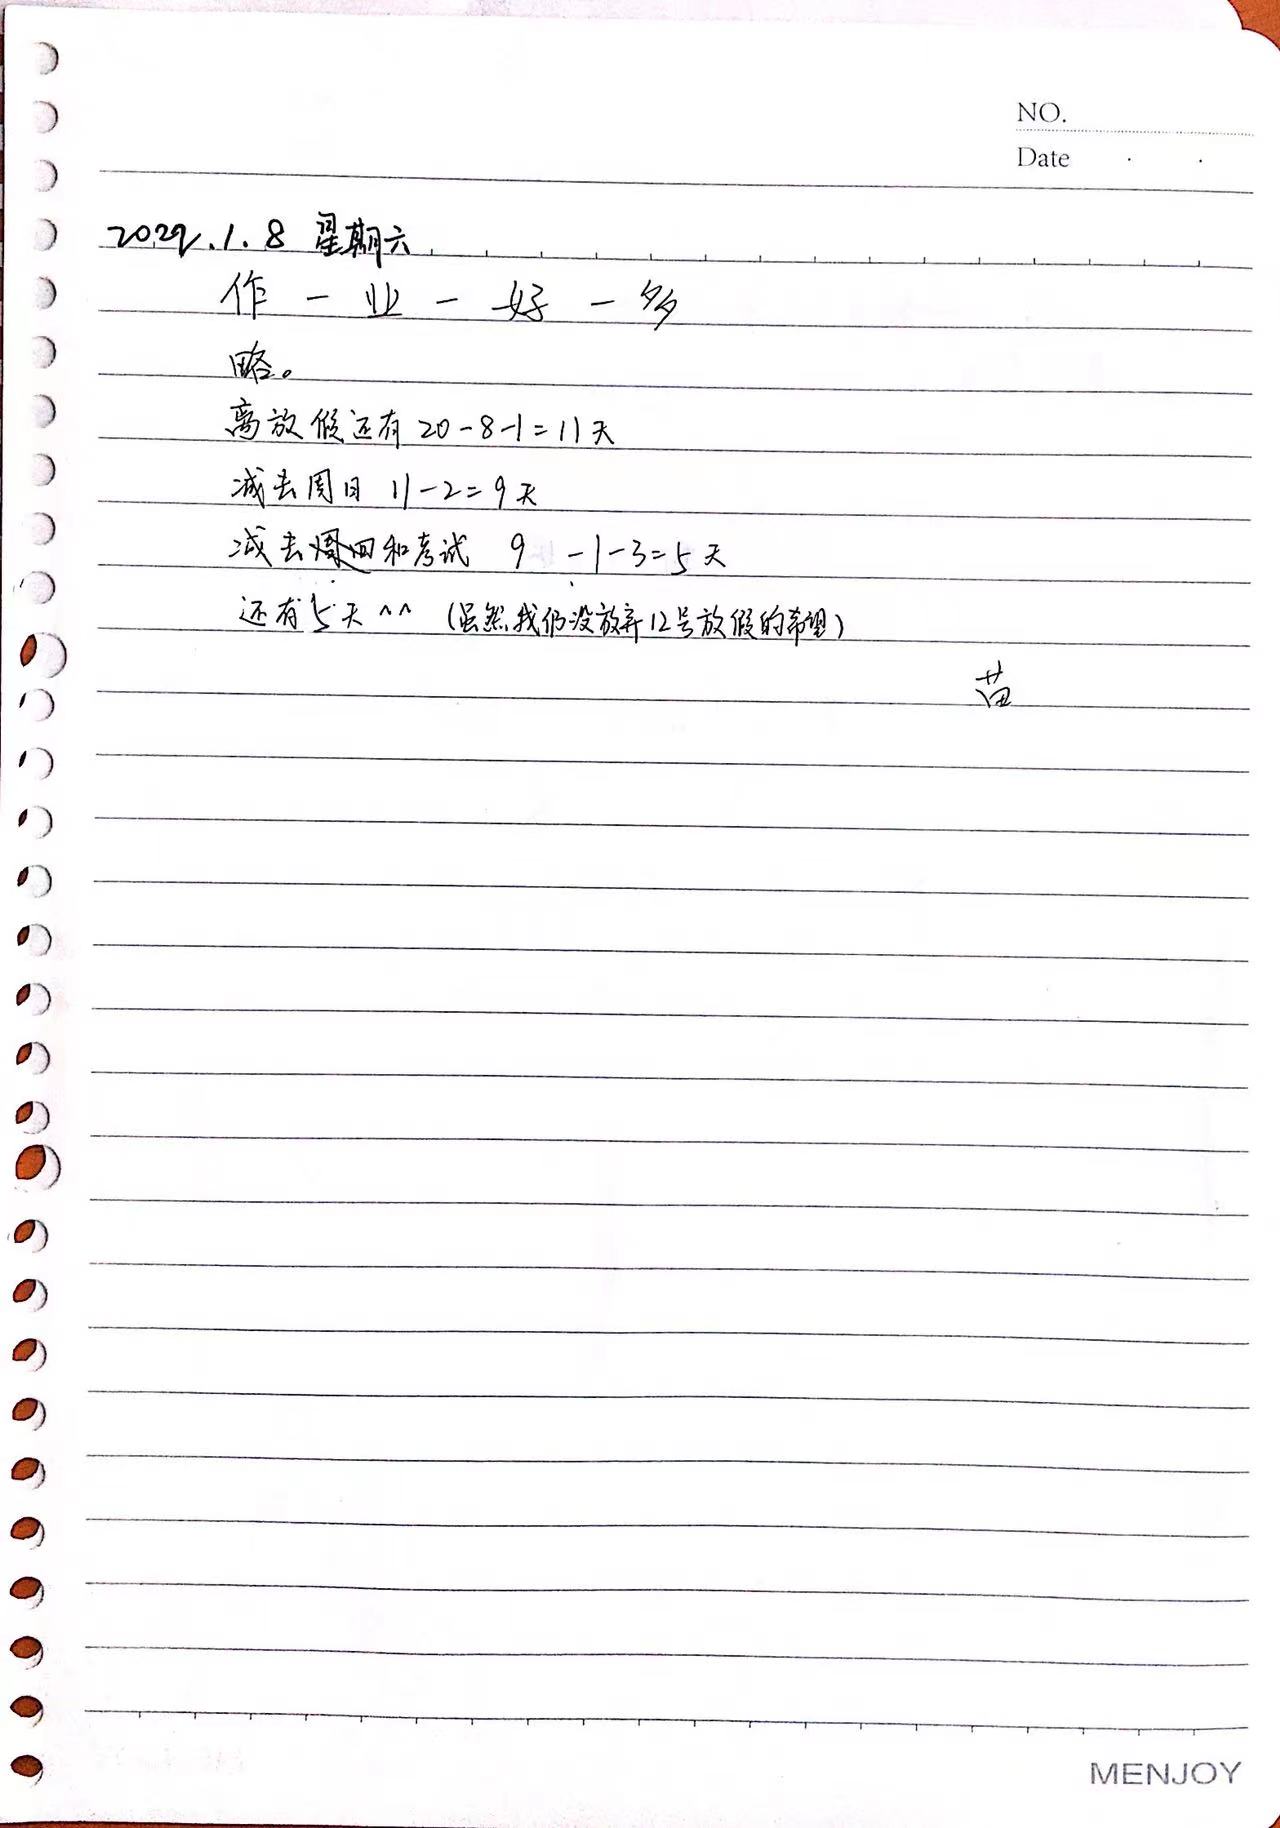 NO.
Date . .
2022.1.8 星期六
作-业-好-多
略。
离放假还有 20-8-1=11天
减去周日 11-2=9天
减去周四和考试 9 -1-3=5天
还有5天^^ (虽然我仍没放弃12号放假的希望)
苗
MENJOY